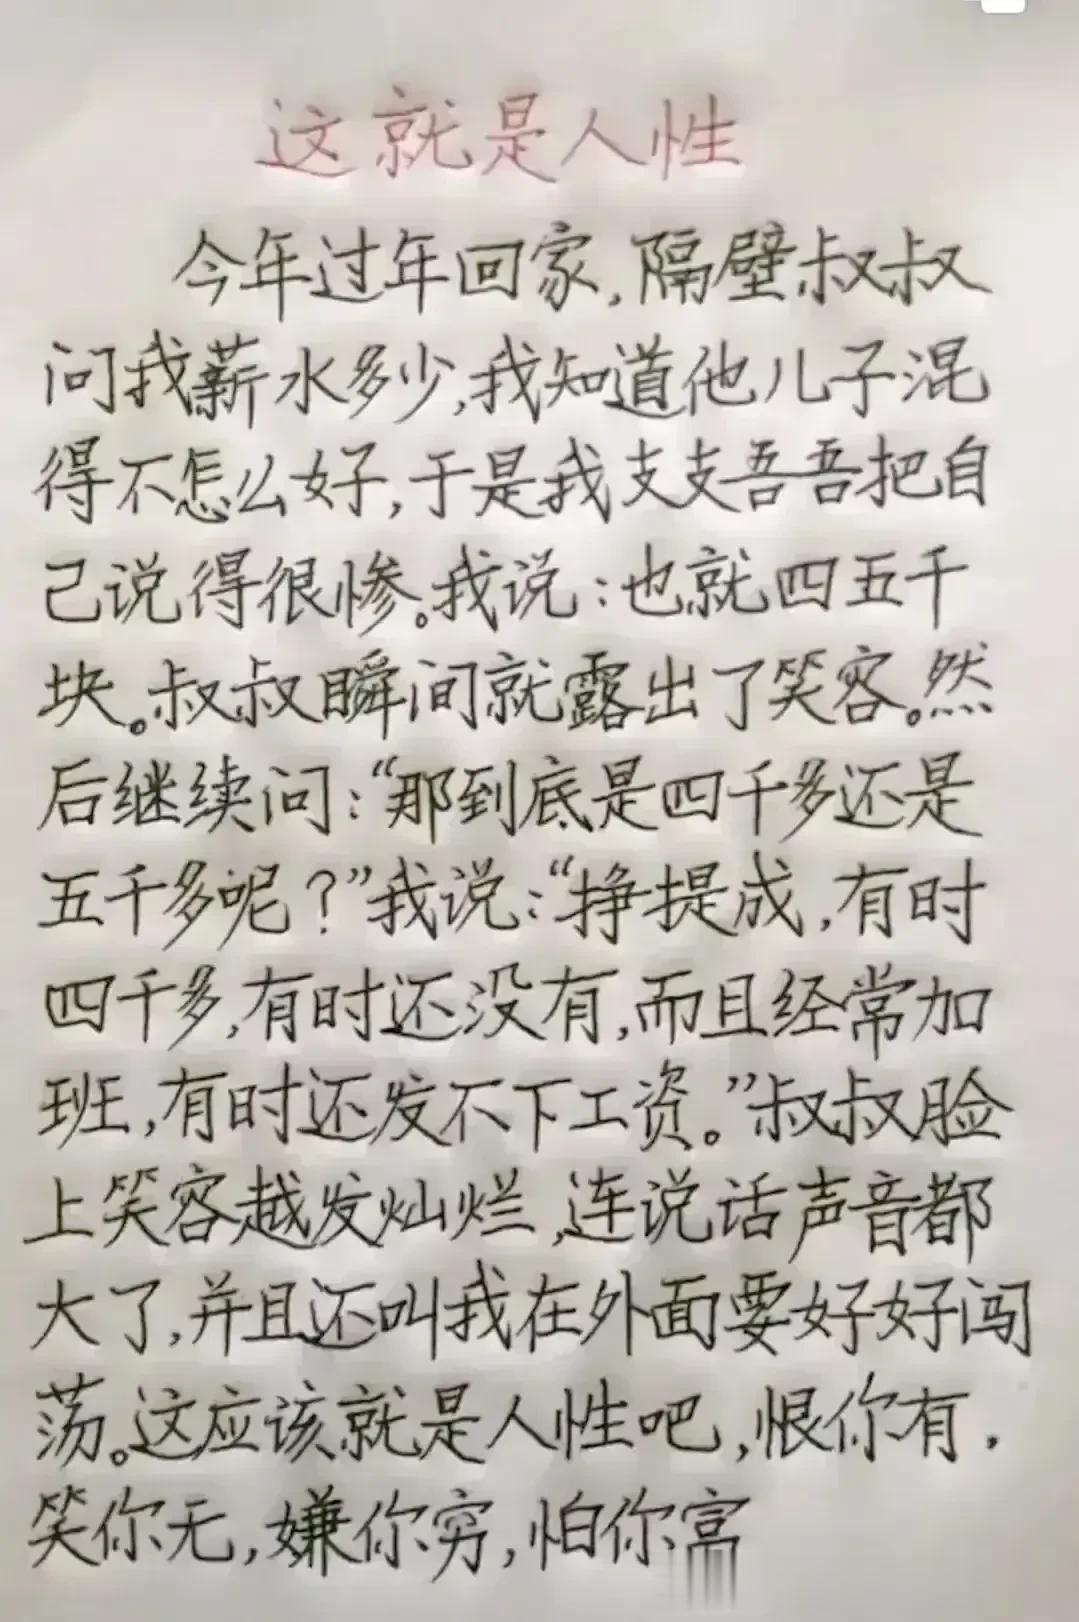 这就是人性
今年过年回家,隔壁叔叔
问我薪水多少,我知道他儿子混
得不怎么好,于是我支支吾吾把自
己说得很惨。我说:也就四五千
块。叔叔瞬间就露出了笑容。然
后继续问:“那到底是四千多还是
五千多呢?”我说:“挣提成,有时
四千多,有时还没有,而且经常加
班,有时还发不下工资。”叔叔脸
上笑容越发灿烂,连说话声音都
大了,并且还叫我在外面要好好闯
荡。这应该就是人性吧,恨你有.
笑你无,嫌你穷,怕你富